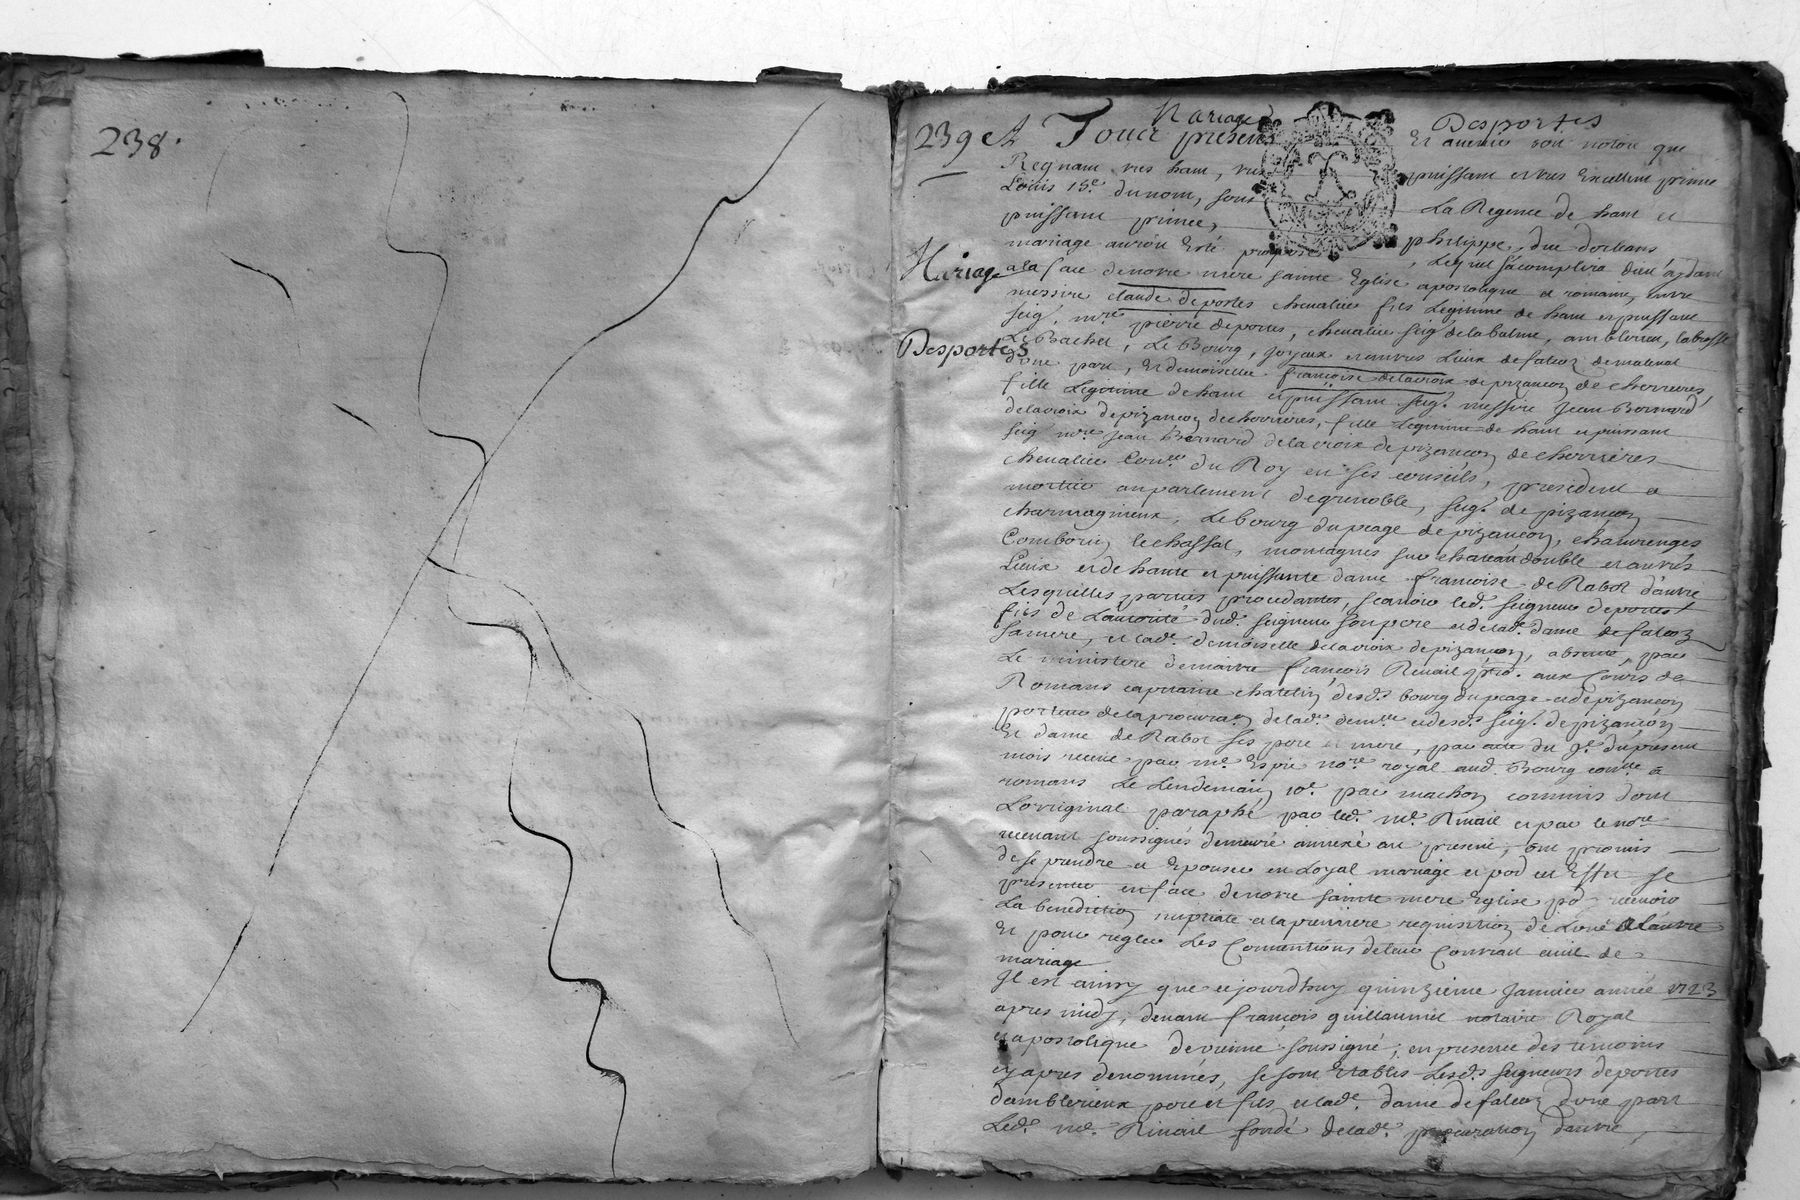 238.
Mariage Desportes
239 A Tous presents Et avenir soit notoire que
Regnant tres haut, tres puissant et tres Excellent prince
Louis 15e. du nom, sous La Regence de haut et
puissant prince, philippe, duc dorleans
mariage auroit esté proposé, Lequel s'acomplira dieu aydant
Mariage
a la face de notre mere sainte Eglise apostolique et romaine, entre
messire claude deportes chevalier fils Legitime de haut et puissant
seig. mre. pierre deportes, chevalier seigr. de la balme, amblerieu, labrosse
Desportes
Le Bachet, Le Bourg, Joyeux et autres Lieux de falcoz de malleval
d'une part, Et demoiselle françoise delacroix de pizançon de cheurieres,
fille Legitime de haut et puissant seigr. messire Jean Bernard
delacroix de pizançon de cheurieres, fille Legitime de haut et puissant
seig. mre. Jean Bernard de la croix de pizançon de cheurieres
chevalier Conser. du Roy en ses conseils, president a
mortier au parlement de grenoble, seigr. de pizançon
charmagnieux, Le bourg du peage de pizançon,
lechassal, montagnes sur chateaudouble et autres
Lieux et de haute et puissante dame françoise de Rabot d'autre
Lesquelles parties procedantes, scavoir led. seigneur deportes
fils de L'autorité dud. seigneur son pere et de lad. dame de falcoz
sa mere, et lad. demoiselle delacroix de pizançon, absente, par
Le ministere de maitre françois Rivail procr. aux Cours de
Romans capitaine chatelin desds. bourg du peage et de pizançon
porteur de la procuraon de lad. demlle. et desds. seigr. de pizançon
Et dame de Rabot ses pere et mere, par acte du 9e. du present
mois receue par me. Espie nore. royal aud. Bourg conlle. à
romans Le Lendemain 10e. par machon commis dont
L'original paraphé par led. me. Rivail et par le nore.
recevant soussignés demeuré annexé au present, ont promis
de se prendre et Epouser en Loyal mariage et por cet Effet se
presenter en face de notre sainte mere Eglise por recevoir
La benediction nuptiale a la premiere requisition de L'une a L'autre
Et pour regler Les Conventions de leur Contrat civil de
mariage
Il est ainsy que cejourdhuy quinzieme Janvier année 1723
apres midy, devant françois guillaumet notaire Royal
et apostolique de vienne soussigné; en presence des temoins
cy apres denommés, se sont Etablis Lesds. seigneurs deportes
damblerieux pere et fils et lad. dame de falcoz d'une part
Led. me. Rivail fondé de lad. procuration d'autre,